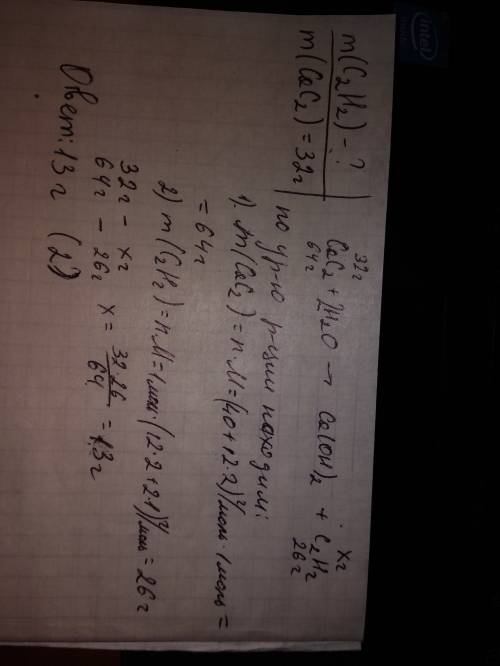 m(C₂H₂) – ?
m(CaC₂) = 32г
32г хг
CaC₂ + 2H₂O → Ca(OH)₂ + C₂H₂
64г 26г
по ур-ю р-ции находим:
1). m(CaC₂) = n·M = (40+12·2)г/моль · 1моль =
= 64г
2) m(C₂H₂) = n·M = 1моль·(12·2+2·1)г/моль = 26г
32г – хг
64г – 26г x = 32·26/64 = 13г
Ответ: 13г (2)
intel